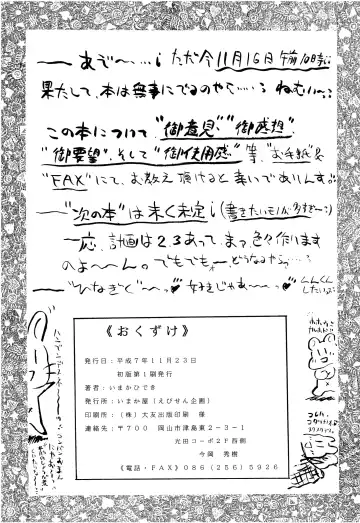 ーーあで〜…¡ ただ今11月16日午前10時¡¡
果たして、本は無事にでるのやら……¡ ねむい〜¡
この本について"御意見""御感想"
"御要望"、そして"御使用感"等、"お手紙"&
"FAX"にて、お教え頂けると幸いでありんす¡¡
ーー"次の本"は未く未定¡(書きたいモノが多すぎ〜¡)
一応、計画は2.3あって、まっ、色々作ります
のよ〜〜ん。でもでもォー、どうなるやら…¡
ーー"ひなぎく"〜っ♥ 好きじゃあ〜〜っ♥
くんくんしたいよ
《おくずけ》
発行日：平成7年11月23日
初版第1刷発行
著者：いまかひでき
発行所：いまか屋（えびせん企画）
印刷所：（株）大友出版印刷 様
連絡先：〒700 岡山市津島東2−3−1
光田コーポ2F西側
今岡 秀樹
《電話・FAX》086（256）5926